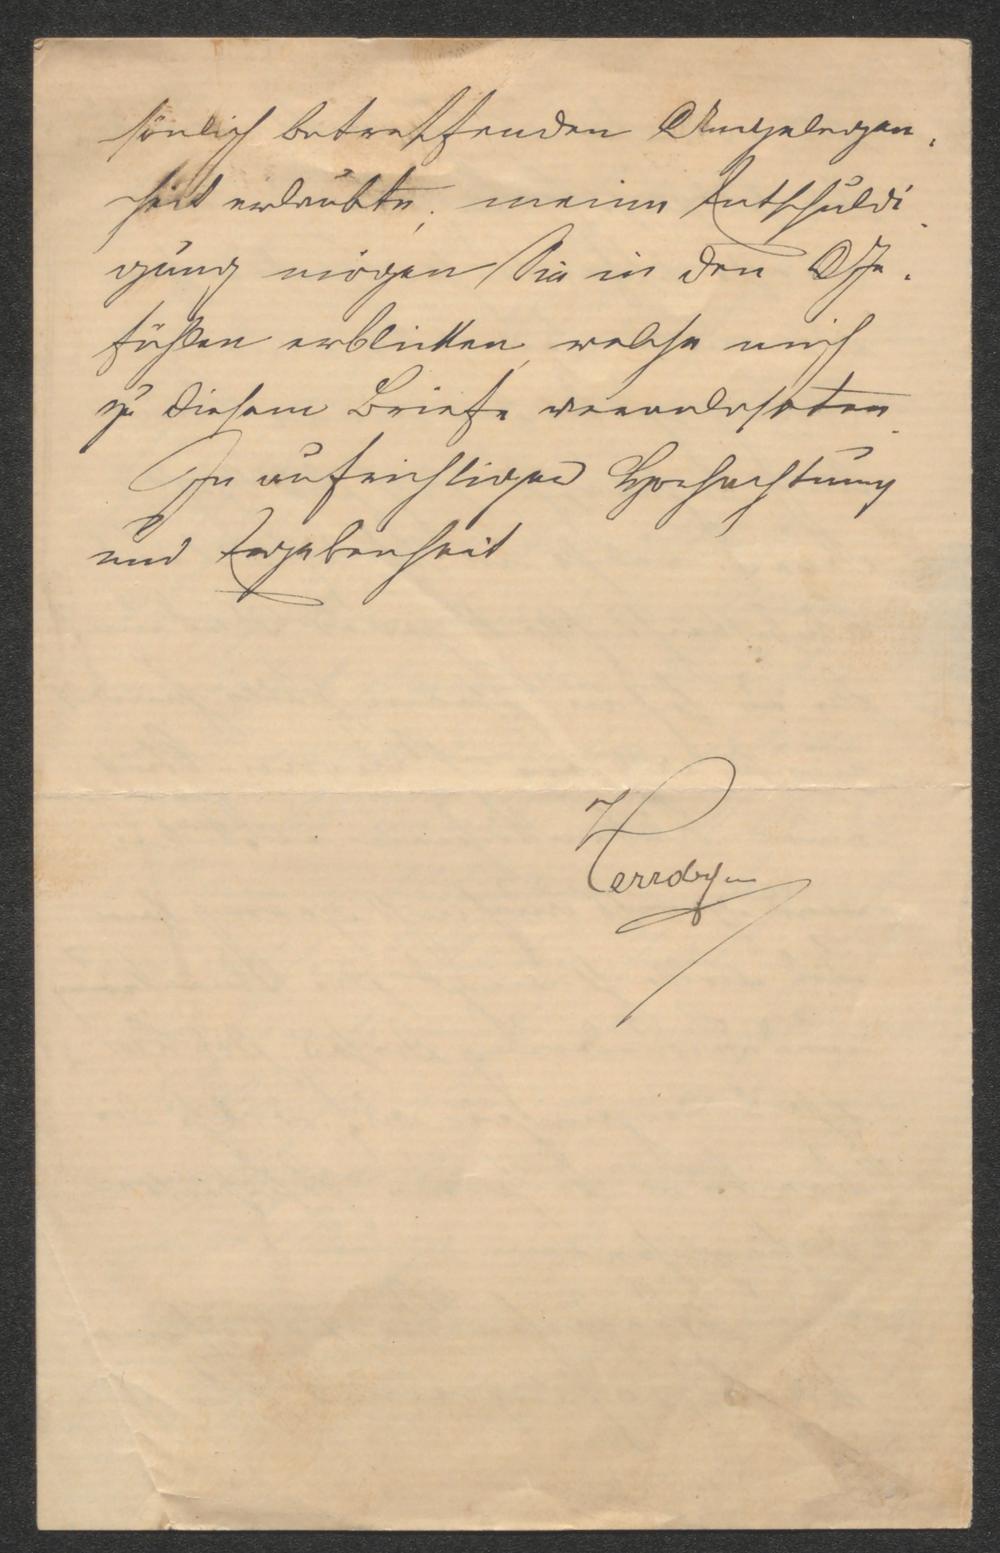 sönlich betreffenden Angelegen-
heit erlaubte, meine Entschuldi-
gung mögen Sie in den Ge-
fühlen erblicken, welche mich
zu diesem Briefe veranlaßten.
In aufrichtiger Hochachtung
und Ergebenheit